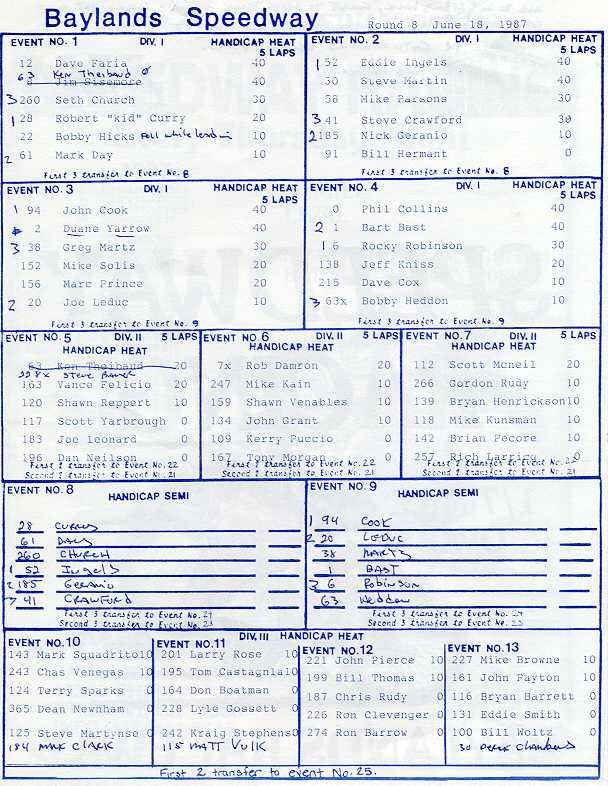 Baylands Speedway Round 8 June 18, 1987
EVENT NO. 1 DIV. I HANDICAP HEAT
5 LAPS
12 Dave Faria 40
63 Ken Theibaud 0
8 Jim Sisemore 40
3 260 Seth Church 30
1 28 Robert "kid" Curry 20
22 Bobby Hicks Fell while leading 10
2 61 Mark Day 10
First 3 transfer to Event No. 8
EVENT NO. 2 DIV. I HANDICAP HEAT
5 LAPS
1 52 Eddie Ingels 40
30 Steve Martin 40
58 Mike Parsons 30
3 41 Steve Crawford 30
2 185 Nick Geranio 10
91 Bill Hermant 0
First 3 transfer to Event No. 8
EVENT NO. 3 DIV. I HANDICAP HEAT
5 LAPS
1 94 John Cook 40
2 Duane Yarrow 40
3 38 Greg Martz 30
152 Mike Solis 20
156 Marc Prince 20
2 20 Joe Leduc 10
First 3 transfer to Event No. 9
EVENT NO. 4 DIV. I HANDICAP HEAT
5 LAPS
0 Phil Collins 40
2 1 Bart Bast 40
1 6 Rocky Robinson 30
138 Jeff Kniss 20
215 Dave Cox 10
3 63x Bobby Heddon 10
First 3 transfer to Event No. 9
EVENT NO. 5 DIV. II 5 LAPS
HANDICAP HEAT
63 Ken Theibaud 20
228x Steve
163 Vance Felicio 20
120 Shawn Reppert 10
117 Scott Yarbrough 0
183 Joe Leonard 0
196 Dan Neilson 0
First 1 transfer to Event No. 22
Second 1 transfer to Event No. 21
EVENT NO. 6 DIV. II 5 LAPS
HANDICAP HEAT
7x Rob Damron 20
247 Mike Kain 10
159 Shawn Venables 10
134 John Grant 10
109 Kerry Puccio 0
167 Tony Morgan 0
First 1 transfer to Event No. 22
Second 1 transfer to Event No. 21
EVENT NO. 7 DIV. II 5 LAPS
HANDICAP HEAT
112 Scott Mcneil 20
266 Gordon Rudy 10
139 Bryan Henrickson 10
118 Mike Kunsman 10
142 Brian Pecore 10
257 Rich Larrico
First 1 transfer to Event No. 22
Second 1 transfer to Event No. 21
EVENT NO. 8
HANDICAP SEMI
28 Curry
61 Day
260 CHURCH
1 52 Ingels
2 185 Geranio
3 41 CRAWFORD
First 3 transfer to Event No. 24
Second 3 transfer to Event No. 23
EVENT NO. 9
HANDICAP SEMI
1 94 Cook
2 20 LEDUC
38 MARTZ
1 BAST
3 6 Robinson
63 Heddon
First 3 transfer to Event No. 24
Second 3 transfer to Event No. 23
DIV. III HANDICAP HEAT
EVENT NO. 10
143 Mark Squadrito 10
243 Chas Venegas 10
124 Terry Sparks 0
365 Dean Newnham 0
125 Steve Martynse 0
184 MARK CLARK
EVENT NO. 11
201 Larry Rose 10
195 Tom Castagnla 10
164 Don Boatman 0
228 Lyle Gossett 0
242 Kraig Stephens 0
115 MATT VULK
EVENT NO. 12
221 John Pierce 10
199 Bill Thomas 10
187 Chris Rudy 0
226 Ron Clevenger 0
274 Ron Barrow 0
EVENT NO. 13
227 Mike Browne 10
161 John Payton 10
116 Bryan Barrett 0
131 Eddie Smith 0
100 Bill Woltz 0
30 Derek Chambers
First 2 transfer to event No. 25.